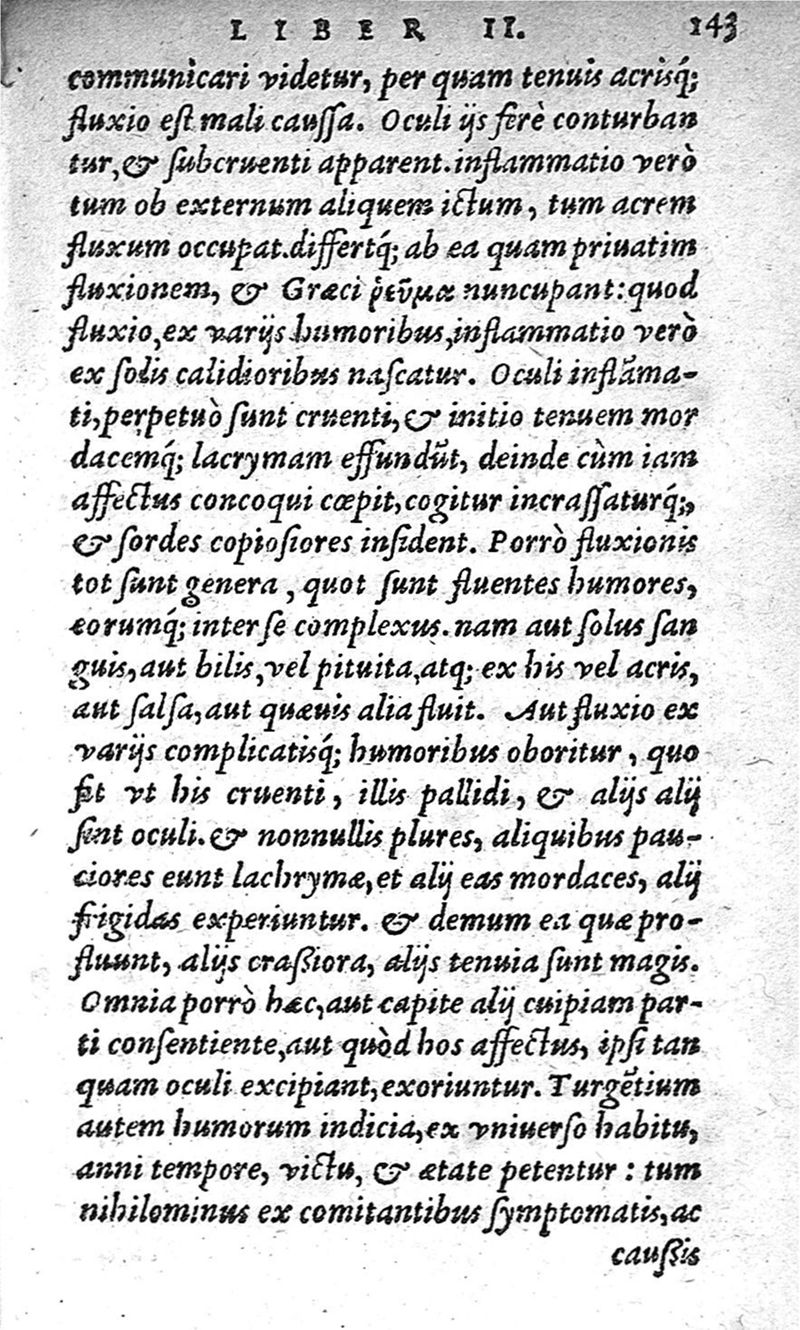 LIBER II. 143
communicari videtur, per quam tenuis acrisq́;
fluxio est mali caussa. Oculi ijs ferè conturban
tur, & subcruenti apparent. inflammatio verò
tum ob externum aliquem ictum, tum acrem
fluxum occupat. differtq́; ab ea quam priuatim
fluxionem, & Græci ῥεῦμα nuncupant: quod
fluxio, ex varijs humoribus, inflammatio verò
ex solis calidioribus nascatur. Oculi inflãma-
ti, perpetuò sunt cruenti, & initio tenuem mor
dacemq́; lacrymam effundũt, deinde cùm iam
affectus concoqui cœpit, cogitur incrassaturq́;,
& sordes copiosiores insident. Porrò fluxionis
tot sunt genera, quot sunt fluentes humores,
eorumq́; inter se complexus. nam aut solus san
guis, aut bilis, vel pituita, atq; ex his vel acris,
aut salsa, aut quæuis alia fluit. Aut fluxio ex
varijs complicatisq́; humoribus oboritur, quo
fit vt his cruenti, illis pallidi, & alijs alij
sint oculi. & nonnullis plures, aliquibus pau-
ciores eunt lachrymæ, et alij eas mordaces, alij
frigidas experiuntur. & demum ea quæ pro-
fluunt, alijs crassiora, alijs tenuia sunt magis.
Omnia porrò hæc, aut capite alij cuipiam par-
ti consentiente, aut quòd hos affectus, ipsi tan
quam oculi excipiant, exoriuntur. Turgẽtium
autem humorum indicia, ex vniuerso habitu,
anni tempore, victu, & ætate petentur: tum
nihilominus ex comitantibus symptomatis, ac
caussis